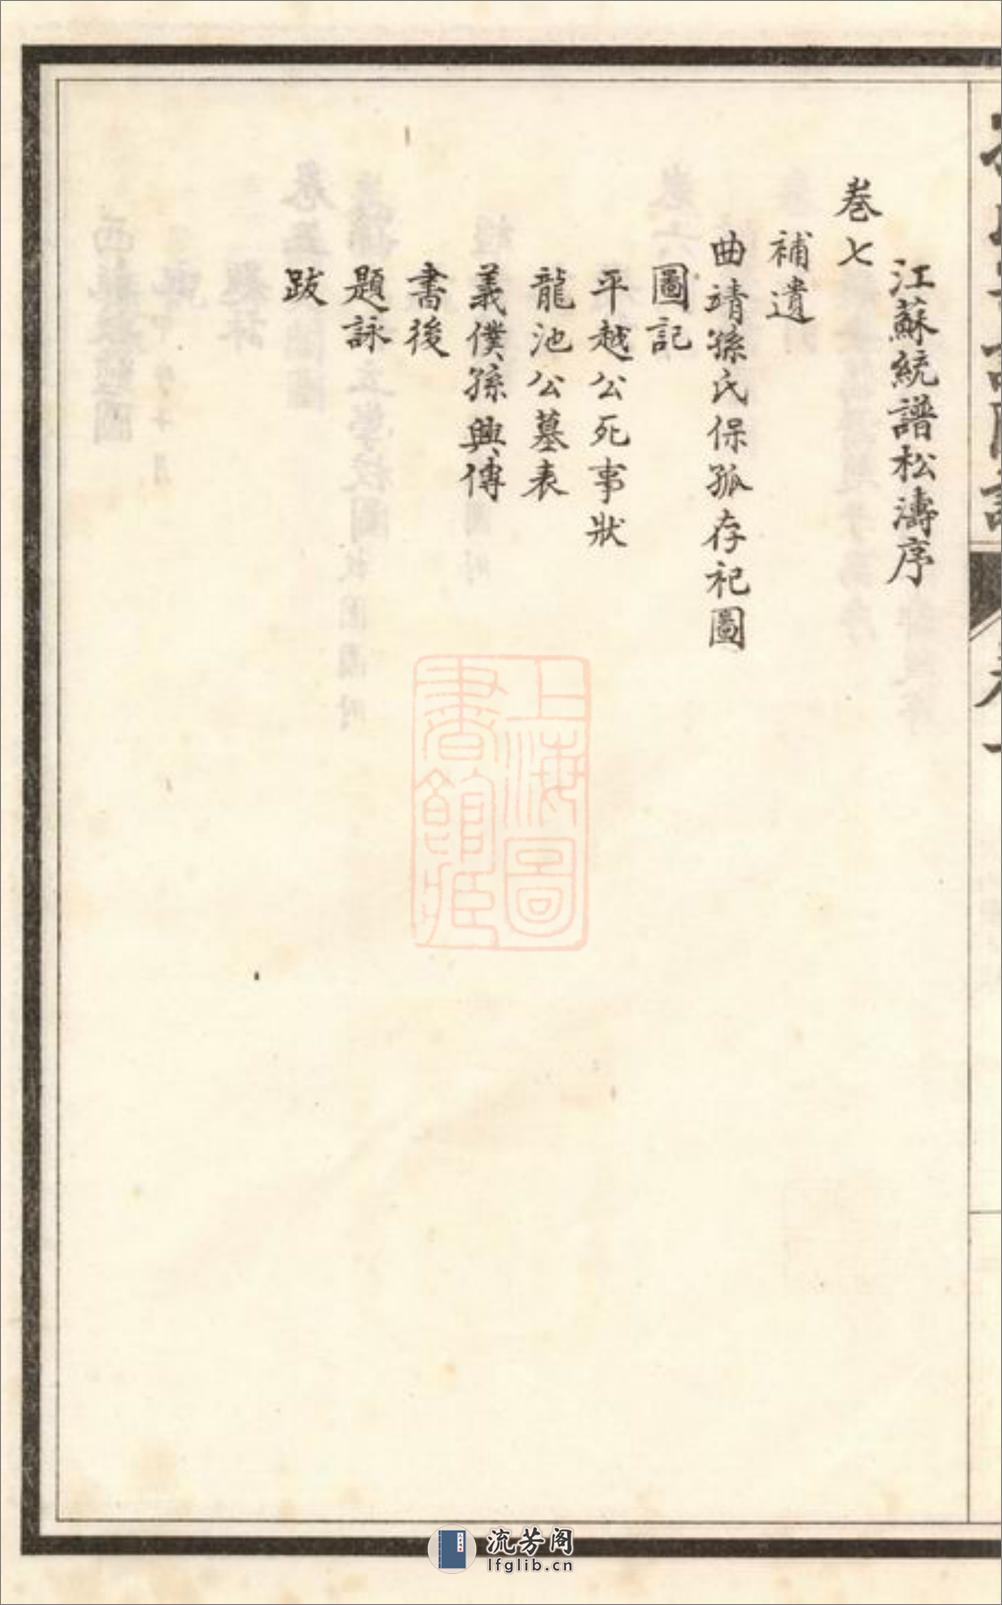 江蘇統譜松濤序
卷七
補遺
曲靖孫氏保孤存祀圖
圖記
平越公死事狀
龍池公墓表
義僕孫興傳
書後
題詠
跋
上海圖
書館藏
流芳阁
lfglib.cn